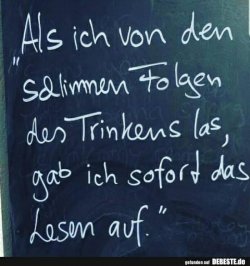 „Als ich von den
schlimmen Folgen
des Trinkens las,
gab ich sofort das
Lesen auf."
gefunden auf DEBESTE.de